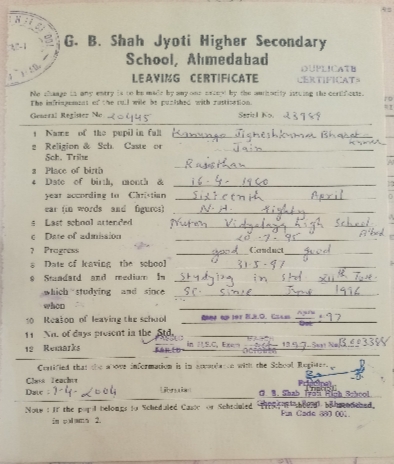 G. B. Shah Jyoti Higher Secondary
School, Ahmedabad
DUPLICATE
CERTIFICATE
LEAVING CERTIFICATE
No change in any entry is to be made by anyone except by the authority issuing the certificate.
The infringement of the rule will be punished with rustication.
General Register No 20445 Serial No. 23959
1 Name of the pupil in full Kanungo Jigneshkumar Bharat-
kumar
2 Religion & Sch. Caste or Jain
Sch. Tribe
3 Place of birth Rajasthan
4 Date of birth, month & 16-4-1980
year according to Christian Sixteenth April
ear (in words and figures) N.H. Eighty
5 Last school attended Nutan Vidyalaya High School
A'bad
6 Date of admission 20-7-95
7 Progress good Conduct good
8 Date of leaving the school 31-5-97
9 Standard and medium in Studying in Std XIIth
which studying and since Sc. since June 1996
when
10 Reason of leaving the school April 97
11 No. of days present in the Std.
12 Remarks PASSED in H.S.C. Exam MARCH 1997 Seat No.
FAILED OCTOBER
Certified that the above information is in accordance with the School Register.
Class Teacher
Principal
Date: 7-4-2004 Librarian
G. B. Shah Jyoti High School
Ahmedabad,
Pin Code 380 001.
Note : If the pupil belongs to Scheduled Caste or Scheduled
in column 2.